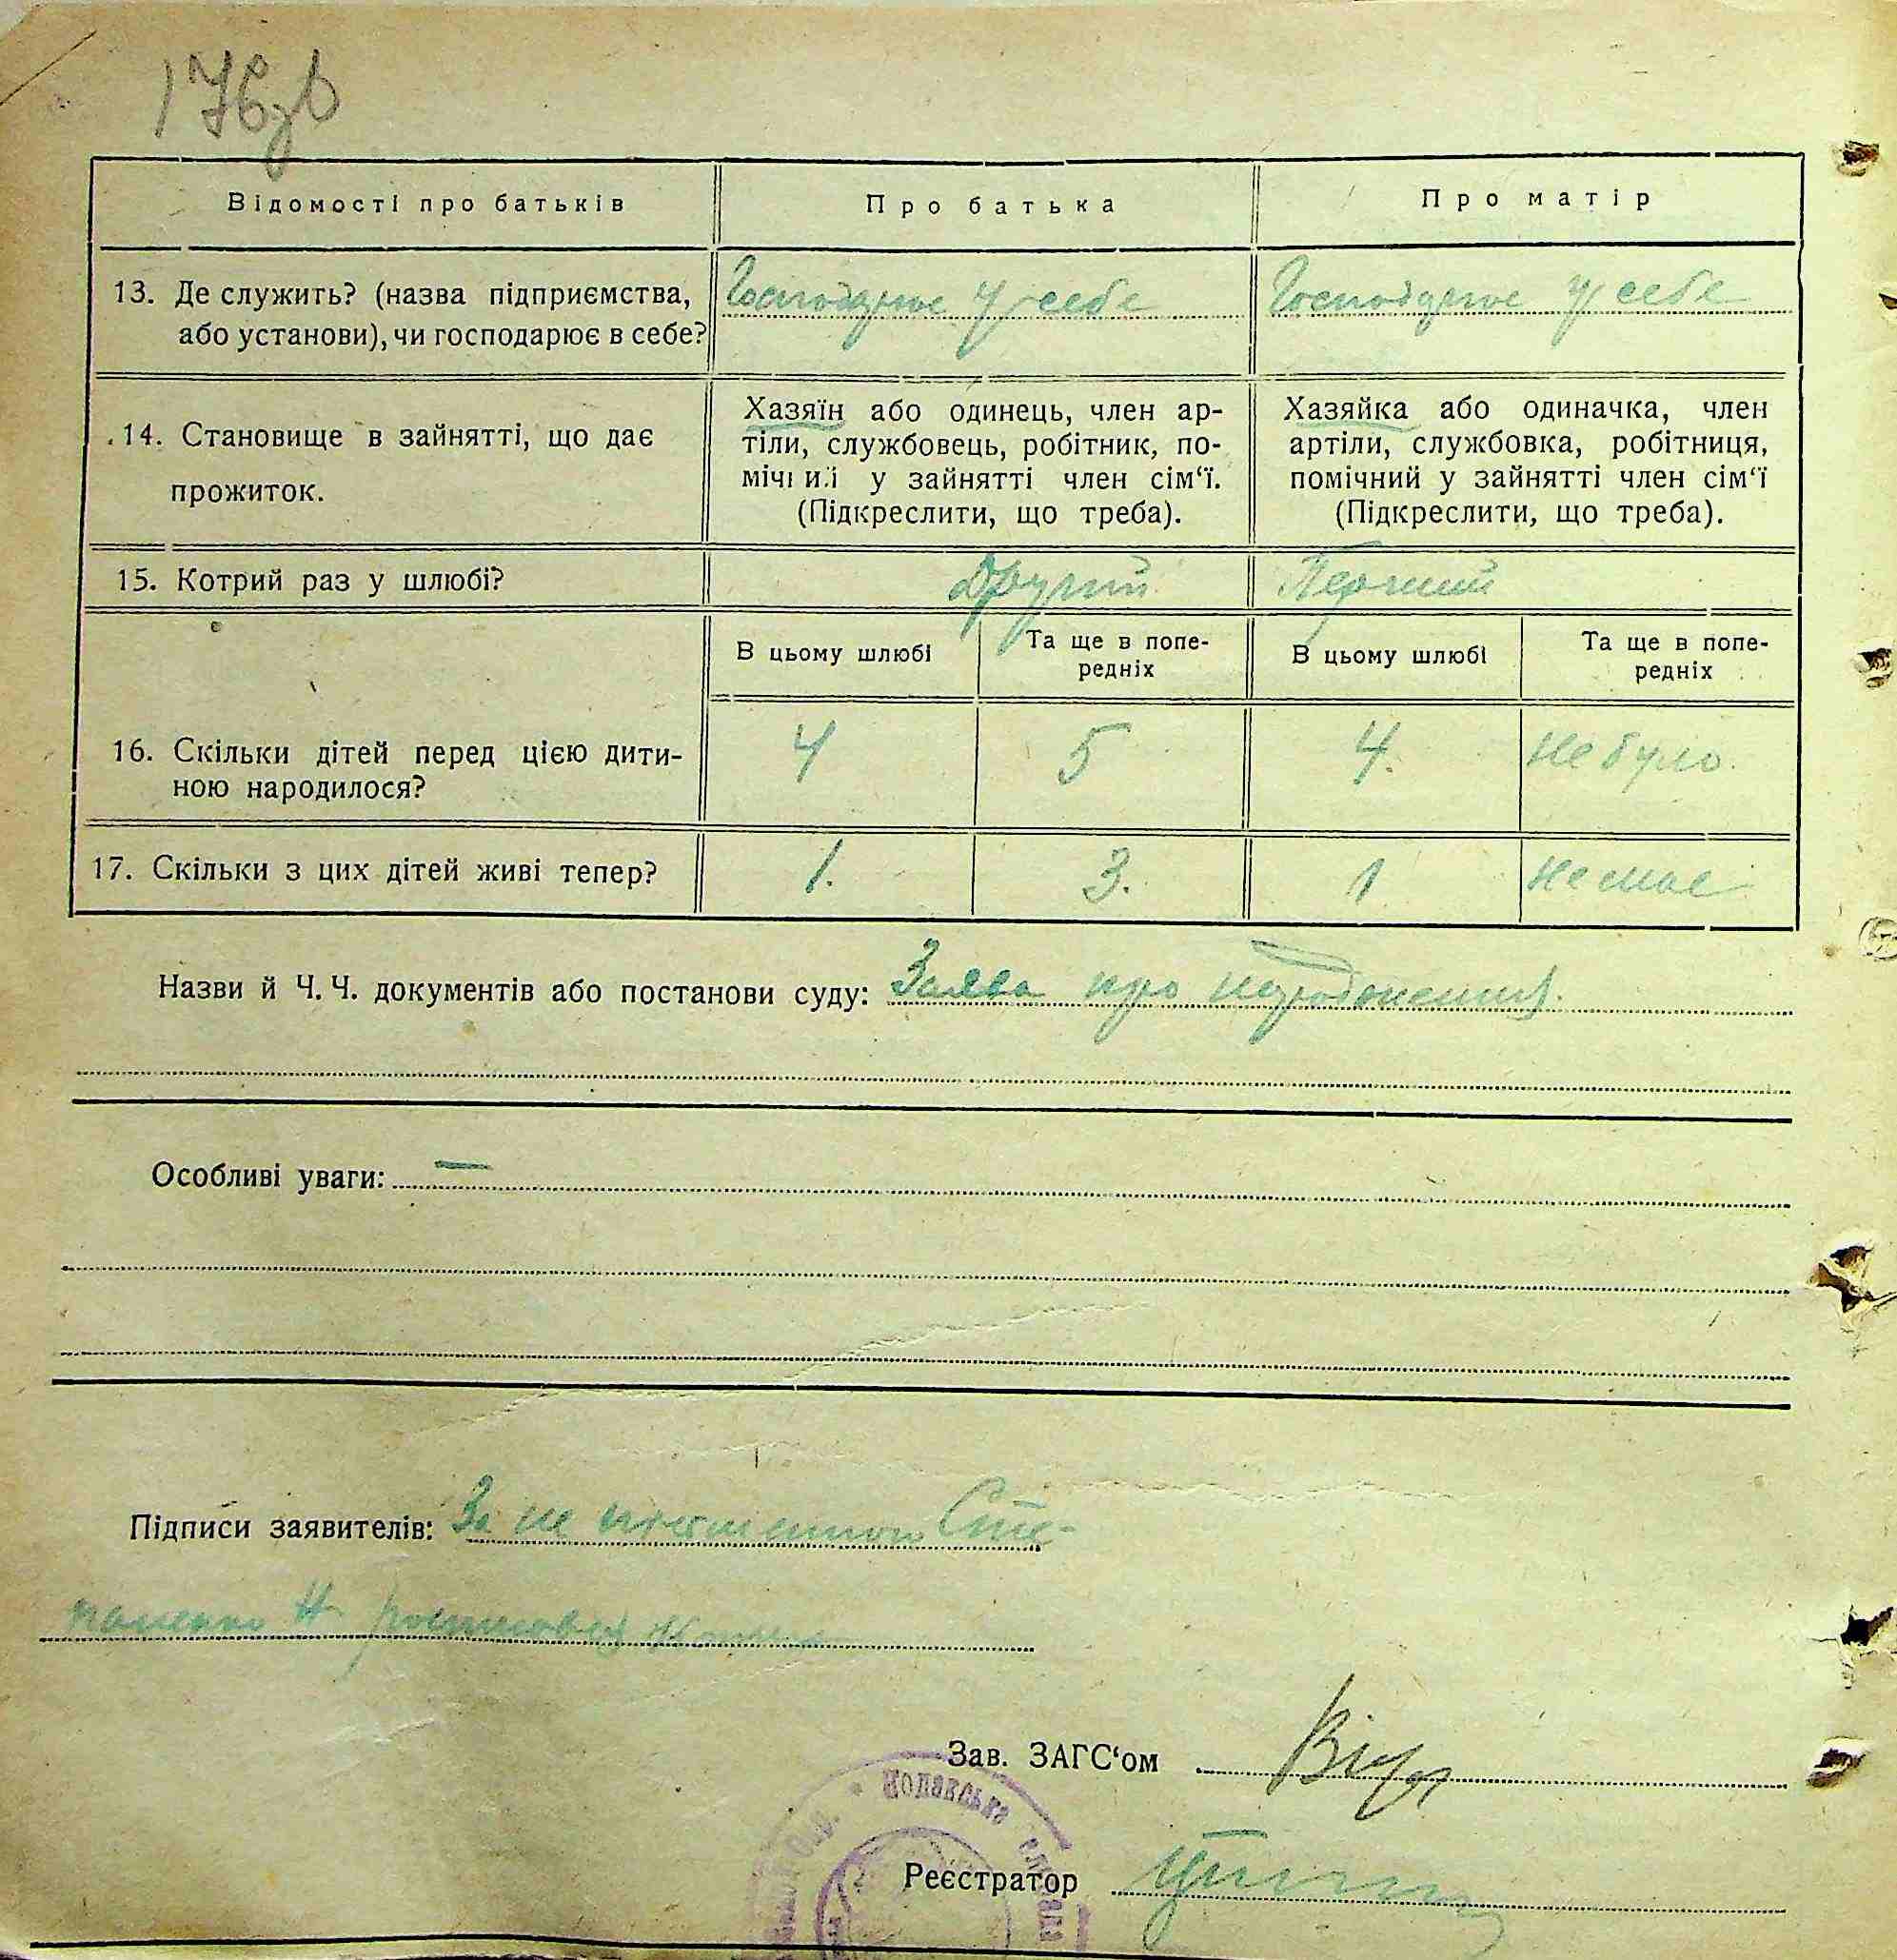 176зв
Відомості про батьків
Про батька
Про матір
13. Де служить? (назва підприємства,
або установи), чи господарює в себе?
Господарює у себе
Господарює у себе
14. Становище в зайнятті, що дає
прожиток.
Хазяїн або одинець, член ар-
тіли, службовець, робітник, по-
мічний у зайнятті член сім‘ї.
(Підкреслити, що треба).
Хазяйка або одиначка, член
артіли, службовка, робітниця,
помічний у зайнятті член сім‘ї
(Підкреслити, що треба).
15. Котрий раз у шлюбі?
Другий
Перший
В цьому шлюбі
Та ще в попе-
редніх
В цьому шлюбі
Та ще в попе-
редніх
16. Скільки дітей перед цією дити-
ною народилося?
4
5
4.
Не було.
17. Скільки з цих дітей живі тепер?
1.
3.
1
Не має
Назви й Ч. Ч. документів або постанови суду: Заява про народження.
Особливі уваги: —
Підписи заявителів: За не письменного Сте-
паненко Н росписався
Зав. ЗАГС‘ом
Реєстратор